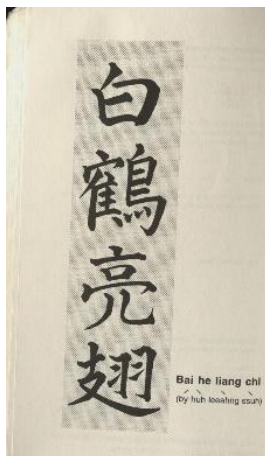 白鶴亮翅
Bai he liang chi
(by huh leeahng tsuh)